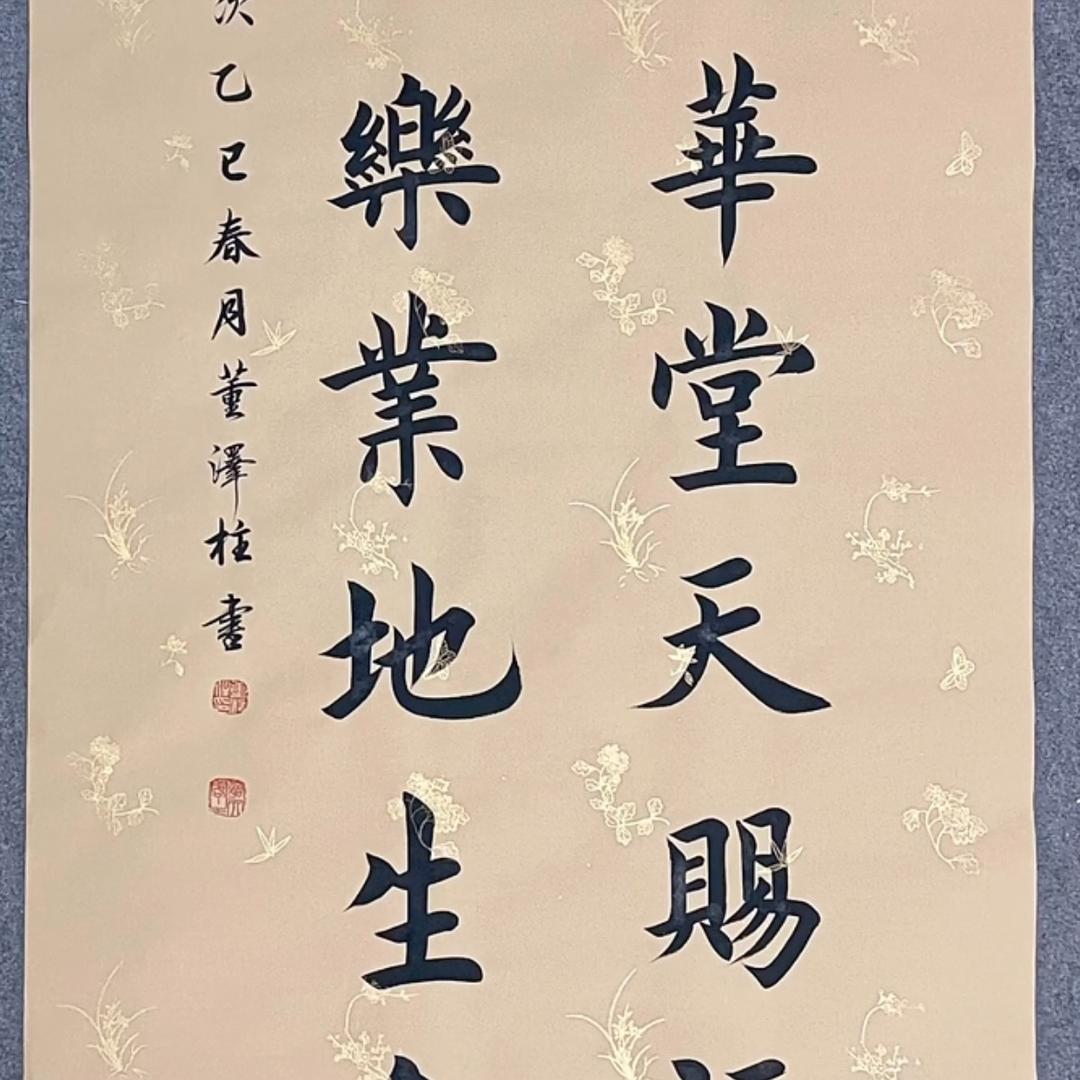 華堂天賜
樂業地生
次乙巳春月董澤柱書